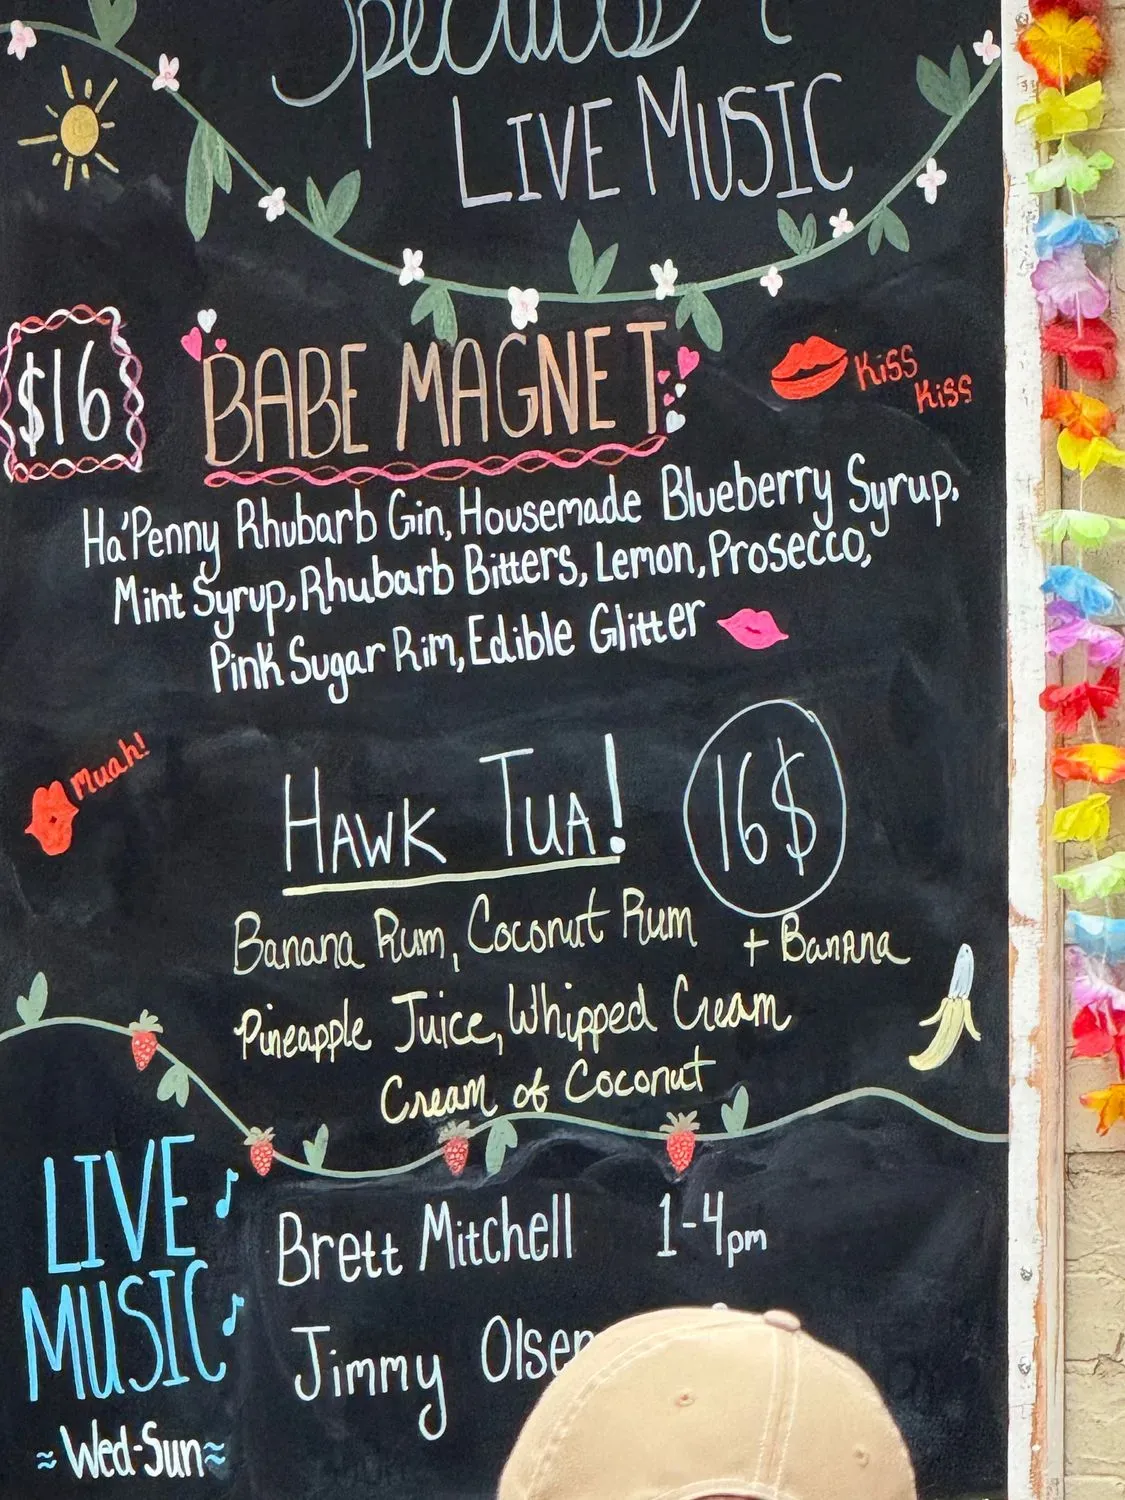 Specials &
LIVE MUSIC
$16
BABE MAGNET
Kiss
Kiss
Ha'Penny Rhubarb Gin, Housemade Blueberry Syrup,
Mint Syrup, Rhubarb Bitters, Lemon, Prosecco,
Pink Sugar Rim, Edible Glitter
Muah!
HAWK TUA!
16$
Banana Rum, Coconut Rum + Banana
Pineapple Juice, Whipped Cream
Cream of Coconut
LIVE
MUSIC
Brett Mitchell 1-4pm
Jimmy Olsen
≈ Wed-Sun ≈